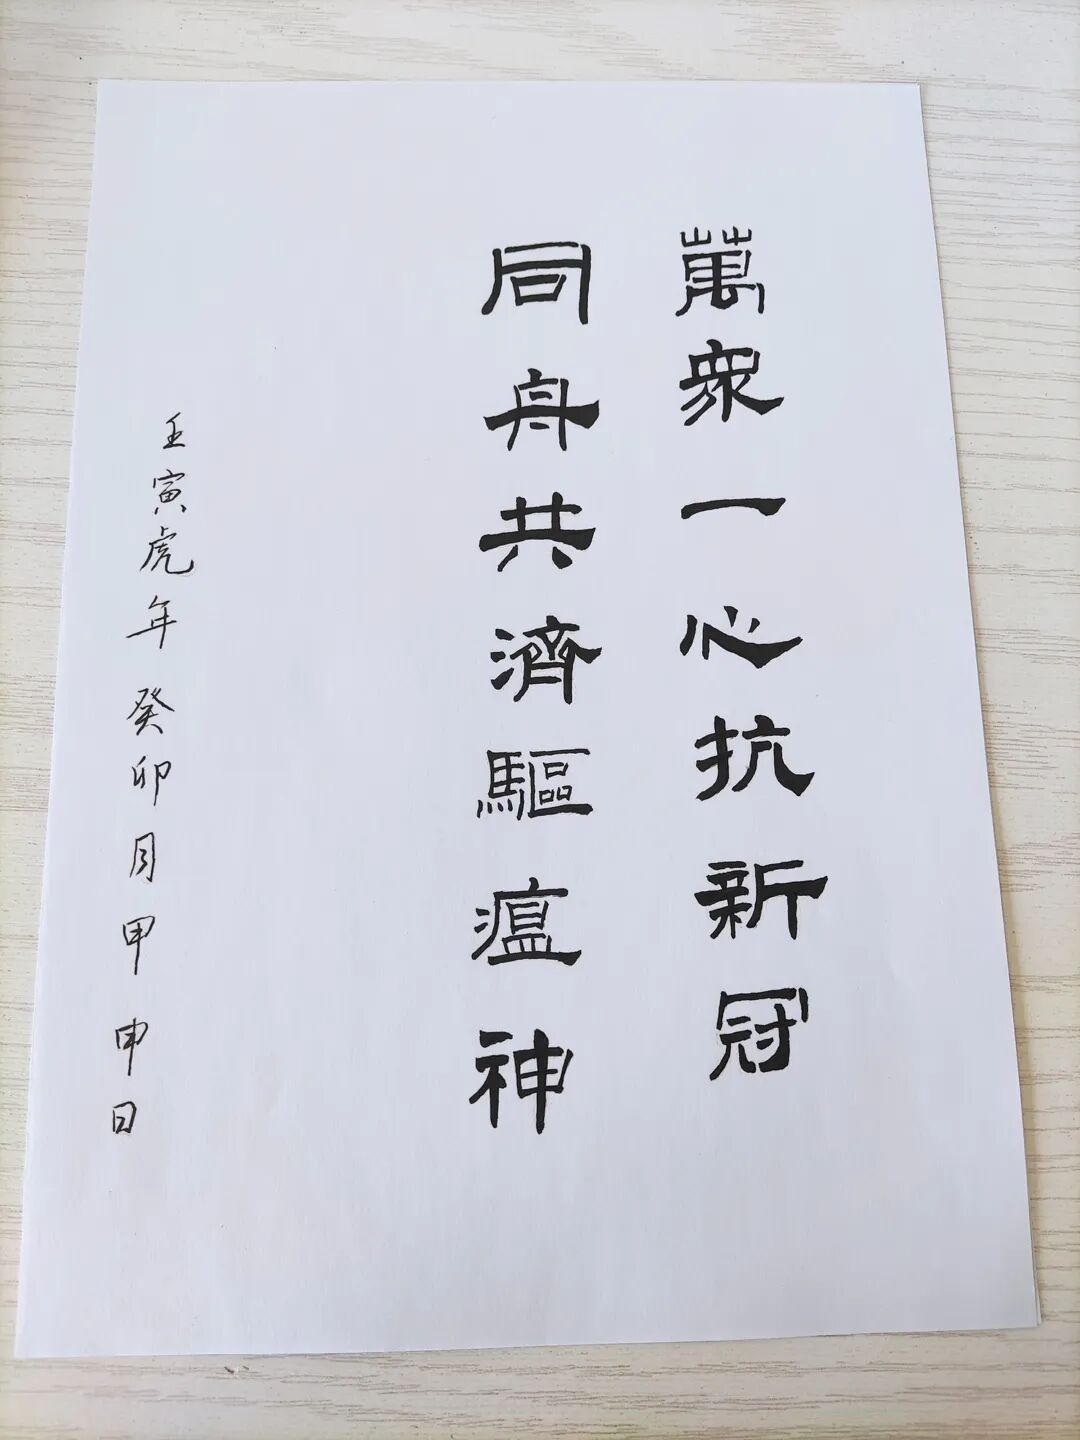 萬衆一心抗新冠
同舟共濟驅瘟神
壬寅虎年癸卯月甲申日